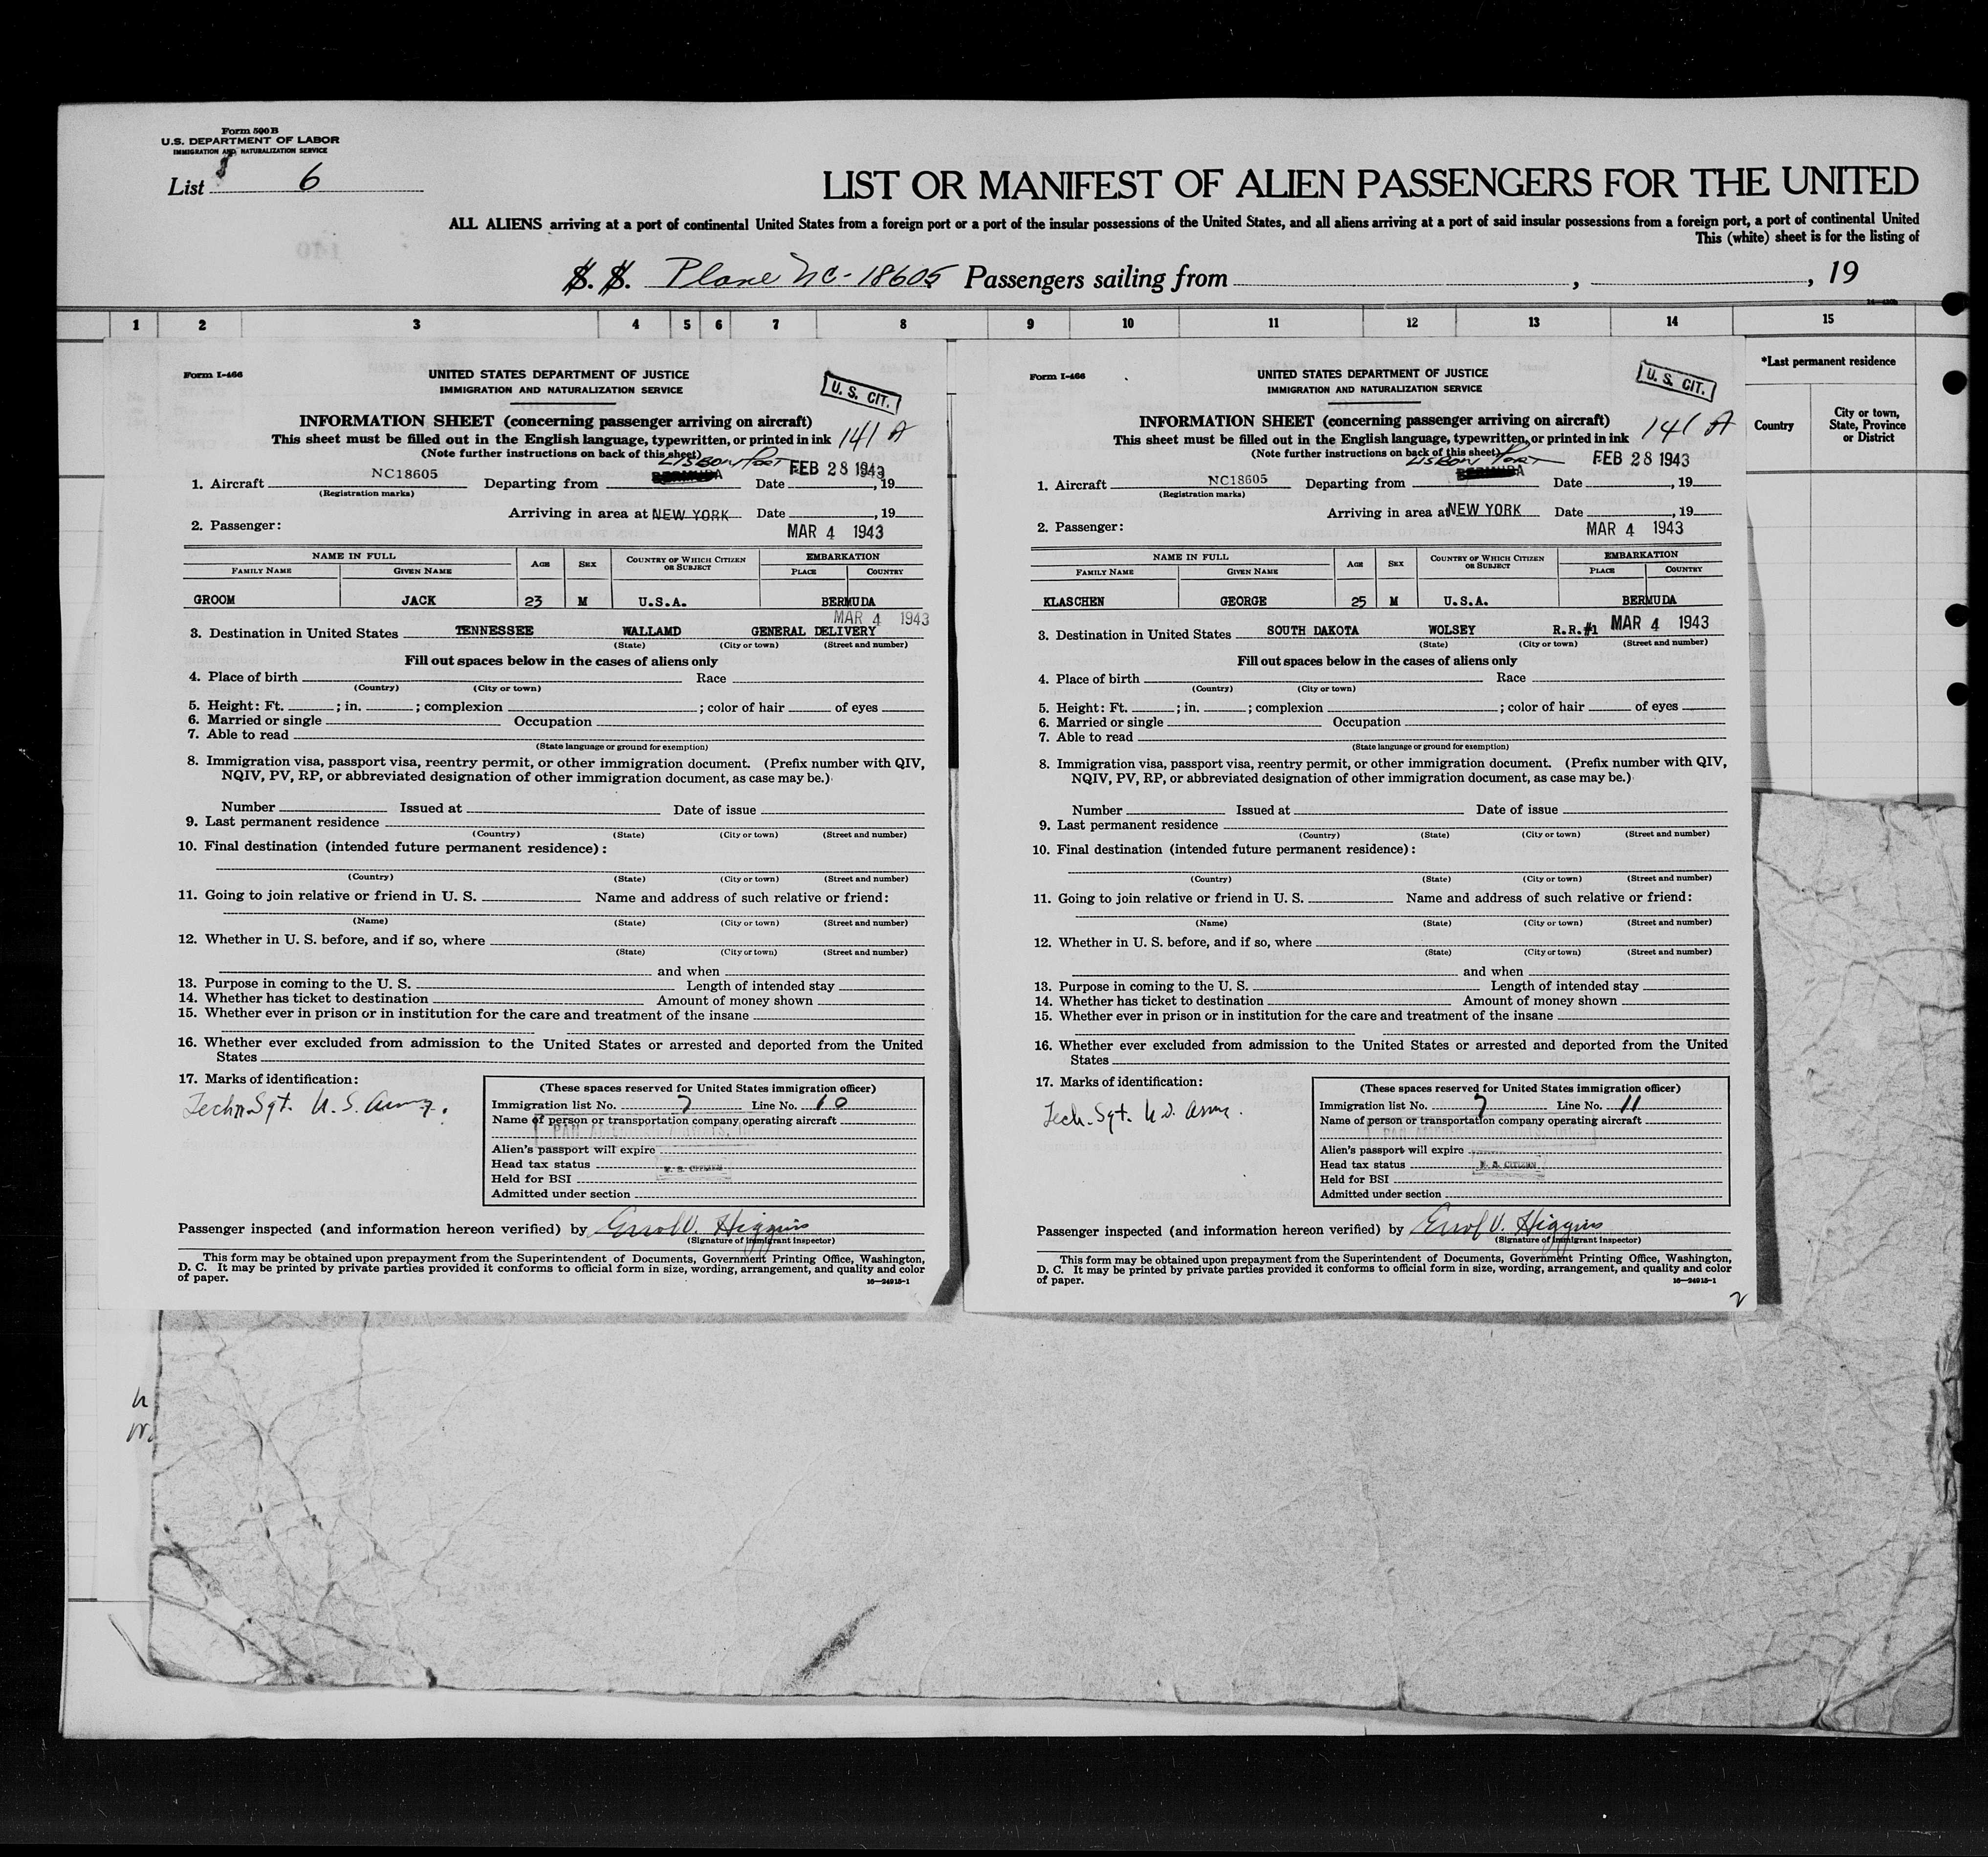 Form 500 B
U.S. DEPARTMENT OF LABOR
IMMIGRATION AND NATURALIZATION SERVICE
List 6
LIST OR MANIFEST OF ALIEN PASSENGERS FOR THE UNITED
ALL ALIENS arriving at a port of continental United States from a foreign port or a port of the insular possessions of the United States, and all aliens arriving at a port of said insular possessions from a foreign port, a port of continental United
This (white) sheet is for the listing of
S. S. Plane NC-18605 Passengers sailing from , , 19
1 2 3 4 5 6 7 8 9 10 11 12 13 14 15
*Last permanent residence
Country
City or town,
State, Province
or District
Form I-466
UNITED STATES DEPARTMENT OF JUSTICE
IMMIGRATION AND NATURALIZATION SERVICE
U. S. CIT.
INFORMATION SHEET (concerning passenger arriving on aircraft)
This sheet must be filled out in the English language, typewritten, or printed in ink 141 A
(Note further instructions on back of this sheet)
LISBON PORT FEB 28 1943
1. Aircraft NC18605 Departing from BERMUDA Date , 19
(Registration marks)
Arriving in area at NEW YORK Date , 19
2. Passenger: MAR 4 1943
NAME IN FULL AGE SEX COUNTRY OF WHICH CITIZEN OR SUBJECT EMBARKATION
FAMILY NAME GIVEN NAME PLACE COUNTRY
GROOM JACK 23 M U.S.A. BERMUDA
MAR 4 1943
3. Destination in United States TENNESSEE WALLAND GENERAL DELIVERY
(State) (City or town) (Street and number)
Fill out spaces below in the cases of aliens only
4. Place of birth Race
(Country) (City or town)
5. Height: Ft. ; in. ; complexion ; color of hair of eyes
6. Married or single Occupation
7. Able to read
(State language or ground for exemption)
8. Immigration visa, passport visa, reentry permit, or other immigration document. (Prefix number with QIV,
NQIV, PV, RP, or abbreviated designation of other immigration document, as case may be.)
Number Issued at Date of issue
9. Last permanent residence
(Country) (State) (City or town) (Street and number)
10. Final destination (intended future permanent residence):
(Country) (State) (City or town) (Street and number)
11. Going to join relative or friend in U. S. Name and address of such relative or friend:
(Name) (State) (City or town) (Street and number)
12. Whether in U. S. before, and if so, where
(State) (City or town) (Street and number)
and when
13. Purpose in coming to the U. S. Length of intended stay
14. Whether has ticket to destination Amount of money shown
15. Whether ever in prison or in institution for the care and treatment of the insane
16. Whether ever excluded from admission to the United States or arrested and deported from the United
States
17. Marks of identification:
Techn. Sgt. U. S. Army.
(These spaces reserved for United States immigration officer)
Immigration list No. 7 Line No. 10
Name of person or transportation company operating aircraft
PAN AMERICAN AIRWAYS, INC.
Alien's passport will expire
Head tax status U. S. CITIZEN
Held for BSI
Admitted under section
Passenger inspected (and information hereon verified) by Errol V. Higgins
(Signature of immigrant inspector)
This form may be obtained upon prepayment from the Superintendent of Documents, Government Printing Office, Washington,
D. C. It may be printed by private parties provided it conforms to official form in size, wording, arrangement, and quality and color
of paper. 16—24915-1
Form I-466
UNITED STATES DEPARTMENT OF JUSTICE
IMMIGRATION AND NATURALIZATION SERVICE
U. S. CIT.
INFORMATION SHEET (concerning passenger arriving on aircraft)
This sheet must be filled out in the English language, typewritten, or printed in ink 141 A
(Note further instructions on back of this sheet)
LISBON PORT FEB 28 1943
1. Aircraft NC18605 Departing from BERMUDA Date , 19
(Registration marks)
Arriving in area at NEW YORK Date , 19
2. Passenger: MAR 4 1943
NAME IN FULL AGE SEX COUNTRY OF WHICH CITIZEN OR SUBJECT EMBARKATION
FAMILY NAME GIVEN NAME PLACE COUNTRY
KLASCHEN GEORGE 25 M U.S.A. BERMUDA
MAR 4 1943
3. Destination in United States SOUTH DAKOTA WOLSEY R.R.#1
(State) (City or town) (Street and number)
Fill out spaces below in the cases of aliens only
4. Place of birth Race
(Country) (City or town)
5. Height: Ft. ; in. ; complexion ; color of hair of eyes
6. Married or single Occupation
7. Able to read
(State language or ground for exemption)
8. Immigration visa, passport visa, reentry permit, or other immigration document. (Prefix number with QIV,
NQIV, PV, RP, or abbreviated designation of other immigration document, as case may be.)
Number Issued at Date of issue
9. Last permanent residence
(Country) (State) (City or town) (Street and number)
10. Final destination (intended future permanent residence):
(Country) (State) (City or town) (Street and number)
11. Going to join relative or friend in U. S. Name and address of such relative or friend:
(Name) (State) (City or town) (Street and number)
12. Whether in U. S. before, and if so, where
(State) (City or town) (Street and number)
and when
13. Purpose in coming to the U. S. Length of intended stay
14. Whether has ticket to destination Amount of money shown
15. Whether ever in prison or in institution for the care and treatment of the insane
16. Whether ever excluded from admission to the United States or arrested and deported from the United
States
17. Marks of identification:
Tech. Sgt. U. S. Army.
(These spaces reserved for United States immigration officer)
Immigration list No. 7 Line No. 11
Name of person or transportation company operating aircraft
PAN AMERICAN AIRWAYS, INC.
Alien's passport will expire
Head tax status U. S. CITIZEN
Held for BSI
Admitted under section
Passenger inspected (and information hereon verified) by Errol V. Higgins
(Signature of immigrant inspector)
This form may be obtained upon prepayment from the Superintendent of Documents, Government Printing Office, Washington,
D. C. It may be printed by private parties provided it conforms to official form in size, wording, arrangement, and quality and color
of paper. 16—24915-1
2